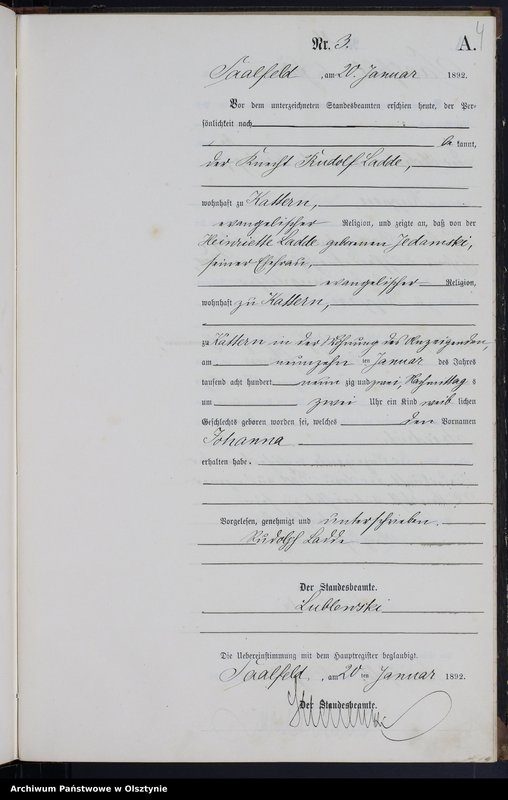 4
Nr. 3. A.
Saalfeld, am 20. Januar 1892.
Vor dem unterzeichneten Standesbeamten erschien heute, der Per-
sönlichkeit nach
be kannt,
der Knecht Rudolf Ladde,
wohnhaft zu Kattern,
evangelischer Religion, und zeigte an, daß von der
Heinriette Ladde geborenen Jedamski,
seiner Ehefrau,
evangelischer Religion,
wohnhaft zu Kattern,
zu Kattern in der Wohnung des Anzeigenden,
am neunzehn ten Januar des Jahres
tausend acht hundert neun zig und zwei, Nachmittag s
um zwei Uhr ein Kind weib lichen
Geschlechts geboren worden sei, welches den Vornamen
Johanna
erhalten habe.
Vorgelesen, genehmigt und unterschrieben.
Rudolf Ladde
Der Standesbeamte.
Lublewski
Die Uebereinstimmung mit dem Hauptregister beglaubigt.
Saalfeld, am 20 ten Januar 1892.
Der Standesbeamte.
Archiwum Państwowe w Olsztynie